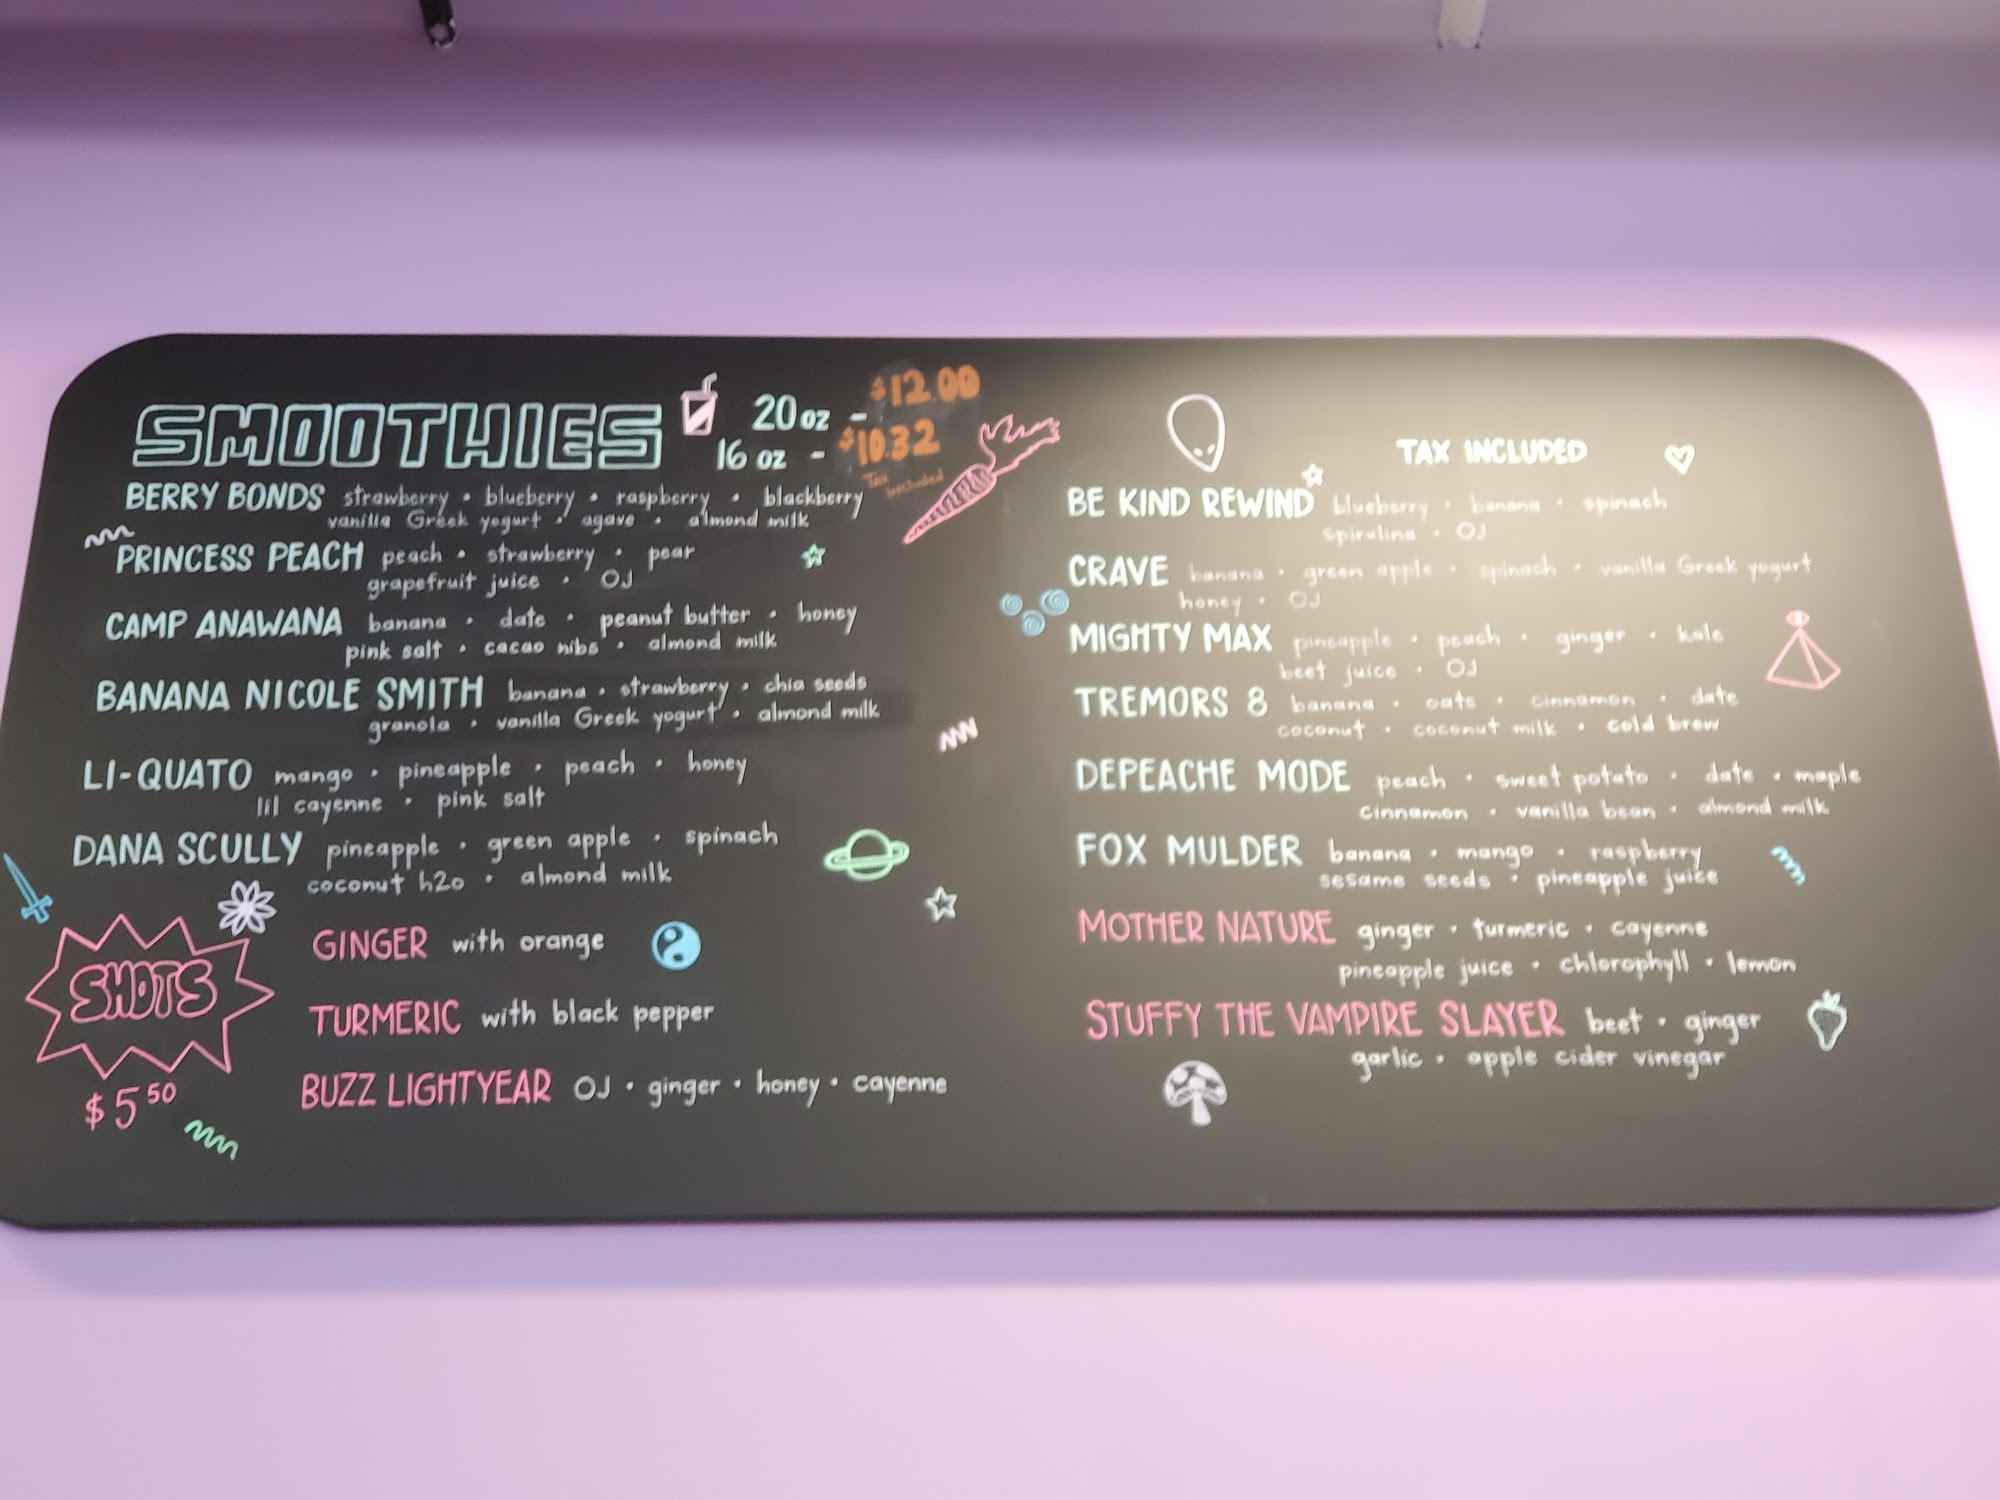 SMOOTHIES
20 oz - $12.00
16 oz - $10.32
Tax included
BERRY BONDS strawberry • blueberry • raspberry • blackberry
vanilla Greek yogurt • agave • almond milk
PRINCESS PEACH peach • strawberry • pear
grapefruit juice • OJ
CAMP ANAWANA banana • date • peanut butter • honey
pink salt • cacao nibs • almond milk
BANANA NICOLE SMITH banana • strawberry • chia seeds
granola • vanilla Greek yogurt • almond milk
LI-QUATO mango • pineapple • peach • honey
lil cayenne • pink salt
DANA SCULLY pineapple • green apple • spinach
coconut h2o • almond milk
SHOTS
$5.50
GINGER with orange
TURMERIC with black pepper
BUZZ LIGHTYEAR OJ • ginger • honey • cayenne
TAX INCLUDED
BE KIND REWIND blueberry • banana • spinach
spirulina • OJ
CRAVE banana • green apple • spinach • vanilla Greek yogurt
honey • OJ
MIGHTY MAX pineapple • peach • ginger • kale
beet juice • OJ
TREMORS 8 banana • oats • cinnamon • date
coconut • coconut milk • cold brew
DEPEACHE MODE peach • sweet potato • date • maple
cinnamon • vanilla bean • almond milk
FOX MULDER banana • mango • raspberry
sesame seeds • pineapple juice
MOTHER NATURE ginger • turmeric • cayenne
pineapple juice • chlorophyll • lemon
STUFFY THE VAMPIRE SLAYER beet • ginger
garlic • apple cider vinegar